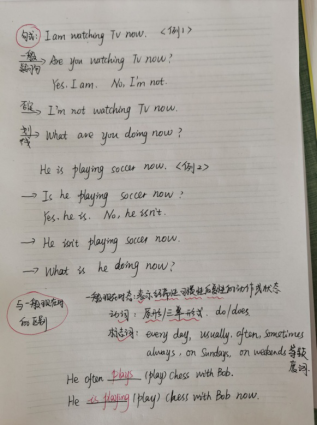 句式: I am watching Tv now. <例1>
一般疑问 → Are you watching Tv now?
Yes. I am. No, I'm not.
否定 → I'm not watching Tv now.
划线 → What are you doing now?
He is playing soccer now. <例2>
→ Is he playing soccer now?
Yes. he is. No, he isn't.
→ He isn't playing soccer now.
→ What is he doing now?
与一般现在时的区别
一般现在时态: 表示经常性习惯性的动作或状态
动词: 原形/三单形式. do/does
标志词: every day, usually. often, sometimes
always, on Sundays, on weekends 等频度词
He often plays (play) chess with Bob.
He is playing (play) chess with Bob now.